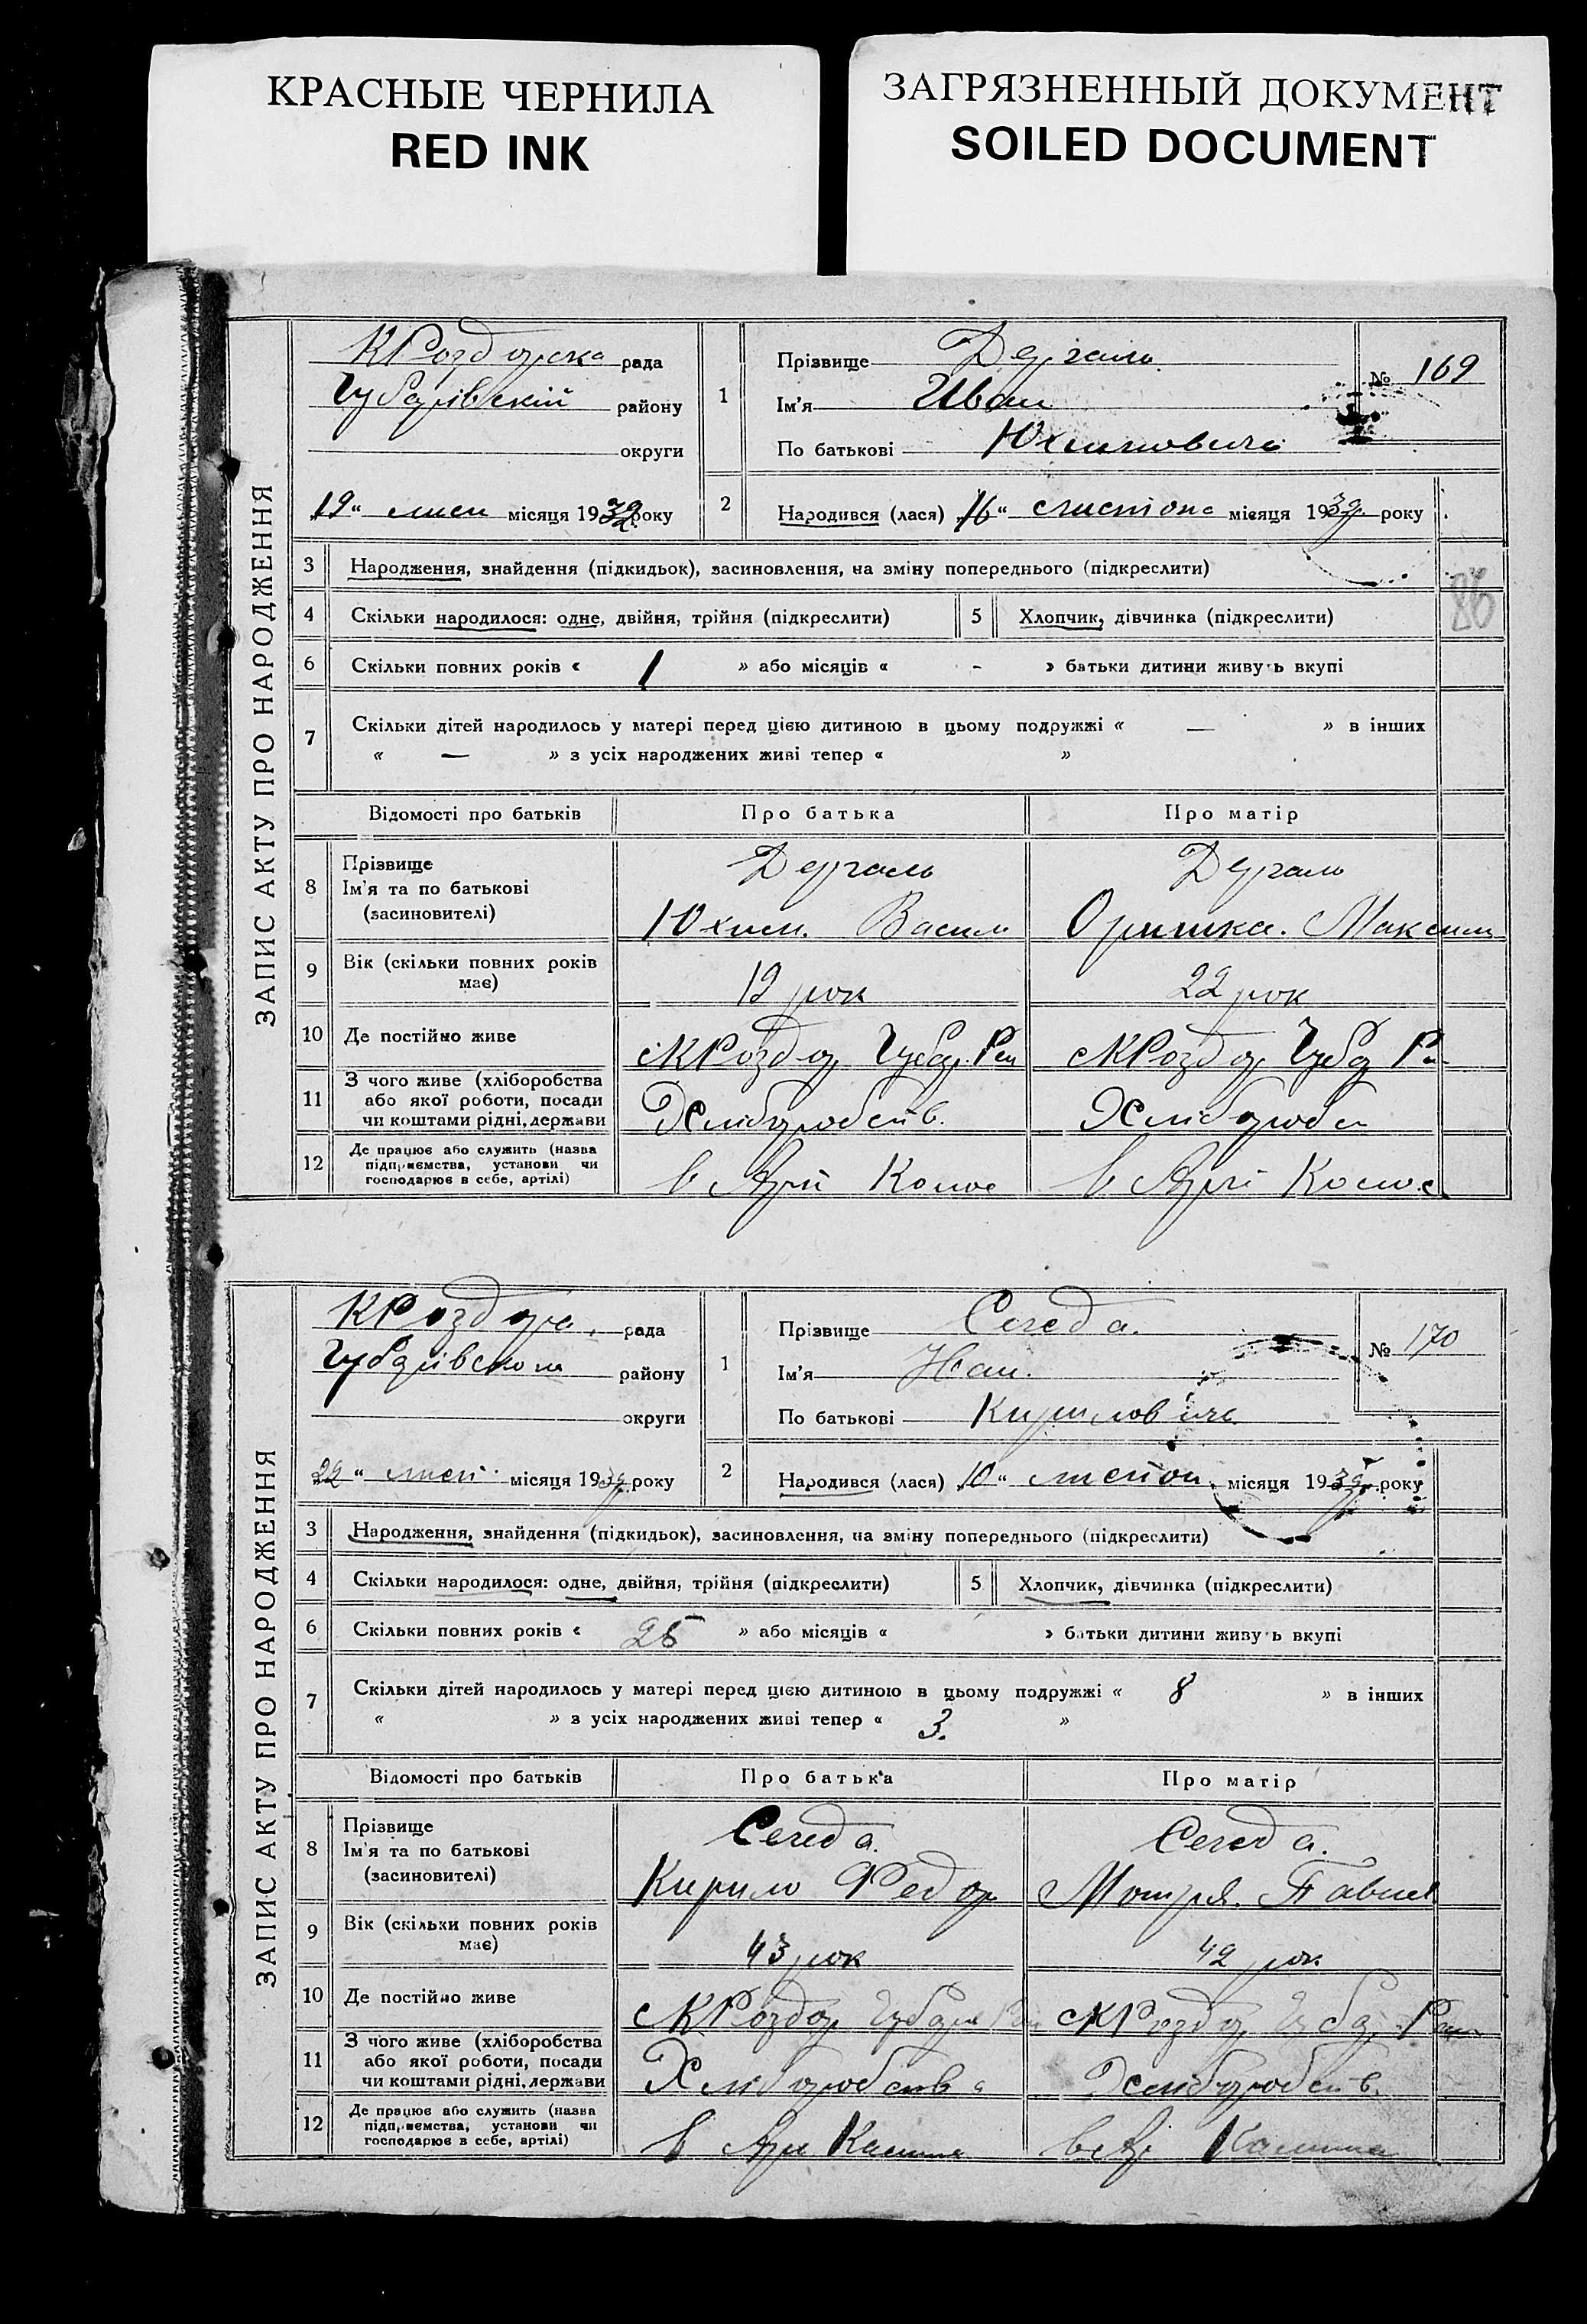 КРАСНЫЕ ЧЕРНИЛА
RED INK
ЗАГРЯЗНЕННЫЙ ДОКУМЕНТ
SOILED DOCUMENT
ЗАПИС АКТУ ПРО НАРОДЖЕННЯ
КРоздорска рада
Губарівскій району
округи
19" лист місяця 1932 року
1
Прізвище
Ім'я Иван
По батькові Юхимовичь
№ 169
2
Народився (лася) 16" листопа місяця 1932 року
3 Народження, знайдення (підкидьок), засиновлення, на зміну попереднього (підкреслити)
86
4 Скільки народилося: одне, двійня, трійня (підкреслити) 5 Хлопчик, дівчинка (підкреслити)
6 Скільки повних років « 1 » або місяців « - » батьки дитини живуть вкупі
7 Скільки дітей народилось у матері перед цією дитиною в цьому подружжі « — » в інших
« — » з усіх народжених живі тепер « »
Відомості про батьків Про батька Про матір
8 Прізвище
Ім'я та по батькові Юхим. Васил Оришка. Максим
(засиновителі)
9 Вік (скільки повних років має) 19 рок 22 рок
10 Де постійно живе сКРоздор Губар. Рай сКРоздор Губар Ра
11 З чого живе (хліборобства
або якої роботи, посади
чи коштами рідні, держави Хліборобств. Хлібороб
12 Де працює або служить (назва
підприємства, установи чи
господарює в себе, артілі) в Арті Колос в Арті Колос
ЗАПИС АКТУ ПРО НАРОДЖЕННЯ
КРоздор. рада
Губарівского району
округи
22" лист. місяця 1932 року
1
Прізвище Середа.
Ім'я Иван.
По батькові Кирилович
№ 170
2
Народився (лася) 10" листоп. місяця 1932 року
3 Народження, знайдення (підкидьок), засиновлення, на зміну попереднього (підкреслити)
4 Скільки народилося: одне, двійня, трійня (підкреслити) 5 Хлопчик, дівчинка (підкреслити)
6 Скільки повних років « 25 » або місяців « » батьки дитини живуть вкупі
7 Скільки дітей народилось у матері перед цією дитиною в цьому подружжі « 8 » в інших
« » з усіх народжених живі тепер « 3. »
Відомості про батьків Про батька Про матір
8 Прізвище Середа. Середа.
Ім'я та по батькові
(засиновителі) Кирило Федор Мотря. Павлов
9 Вік (скільки повних років має) 43 рок 42 рок
10 Де постійно живе сКРоздор Губар Рай сКРоздор Губар. Рай
11 З чого живе (хліборобства
або якої роботи, посади
чи коштами рідні, держави Хліборобства Хліборобств.
12 Де працює або служить (назва
підприємства, установи чи
господарює в себе, артілі) в Арт